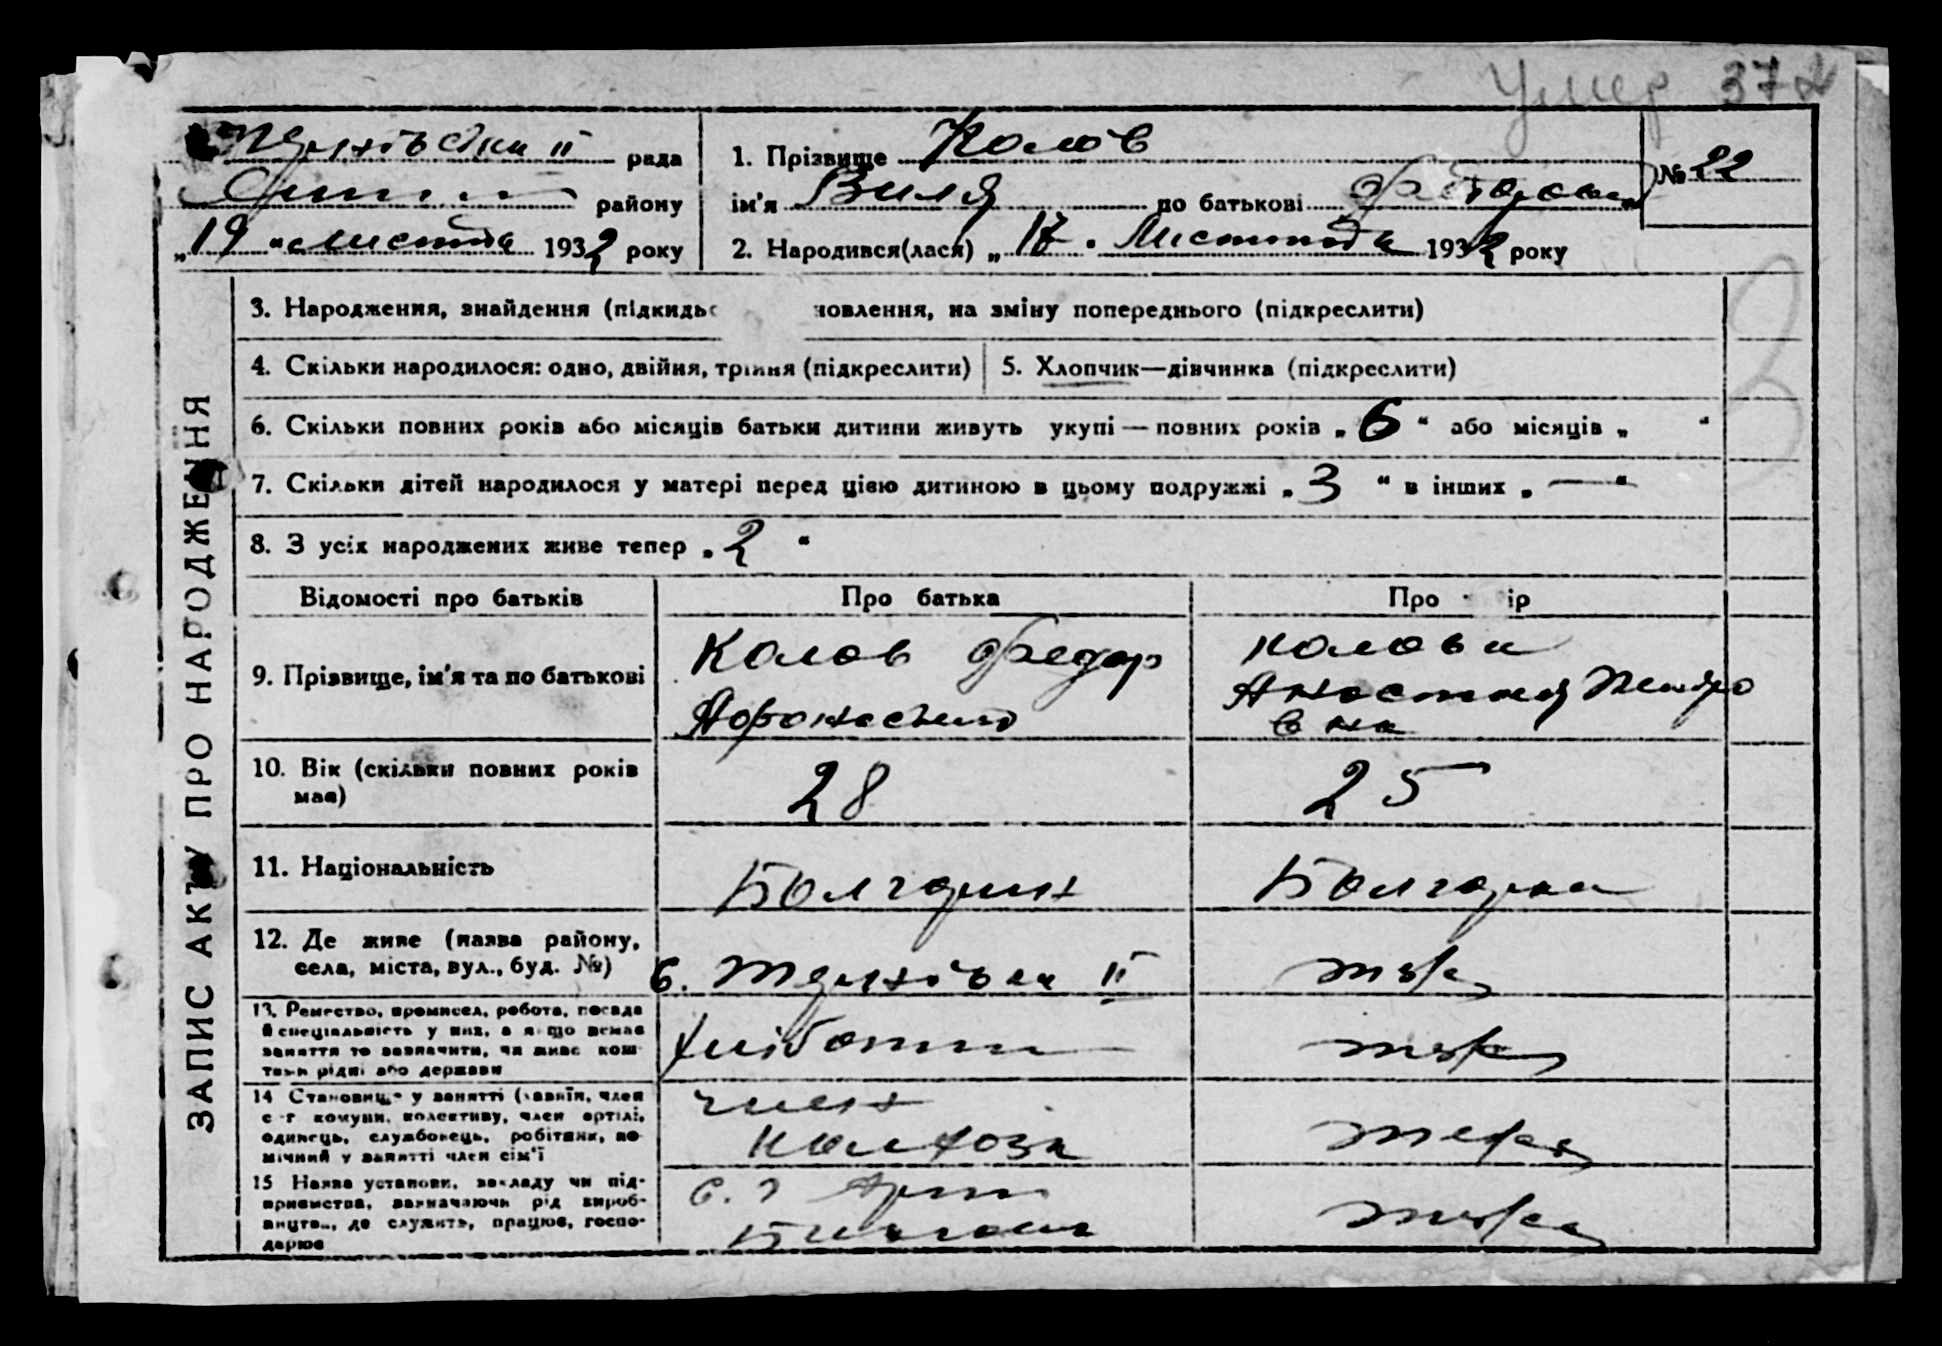 Умер 37
рада
району
„19" листопада 1932 року
1. Прізвище Колов
ім'я Виля по батькові Федорович
№ 22
2. Народився(лася) „17" Листопада 1932 року
ЗАПИС АКТУ ПРО НАРОДЖЕННЯ
3. Народження, знайдення (підкидьо новлення, на зміну попереднього (підкреслити)
4. Скільки народилося: одно, двійня, трійня (підкреслити)
5. Хлопчик—дівчинка (підкреслити)
6. Скільки повних років або місяців батьки дитини живуть укупі — повних років „6" або місяців „ "
7. Скільки дітей народилося у матері перед цією дитиною в цьому подружжі „3" в інших „—"
8. З усіх народжених живе тепер „2"
Відомості про батьків
Про батька
Про ір
9. Прізвище, ім'я та по батькові
Колов Федор
Колова
Анастасия Петро
вна
10. Вік (скільки повних років
має)
28
25
11. Національність
Болгарин
Болгарка
12. Де живе (назва району,
села, міста, вул., буд. №)
с. II
13. Ремество, промисел, робота, посада
й спеціяльність у них, а якщо немає
заняття то зазначити, чи живе кош
тами рідні або держави
14 Становище у занятті (хазяїн, член
с-г комуни, колективу, член артілі,
одинець, службовець, робітник, по-
мічний у занятті член сім'ї
член
колхоза
15 Назва установи, закладу чи під-
приємства, зазначаючи рід вироб-
ництва, де служить, працює, госпо-
дарює